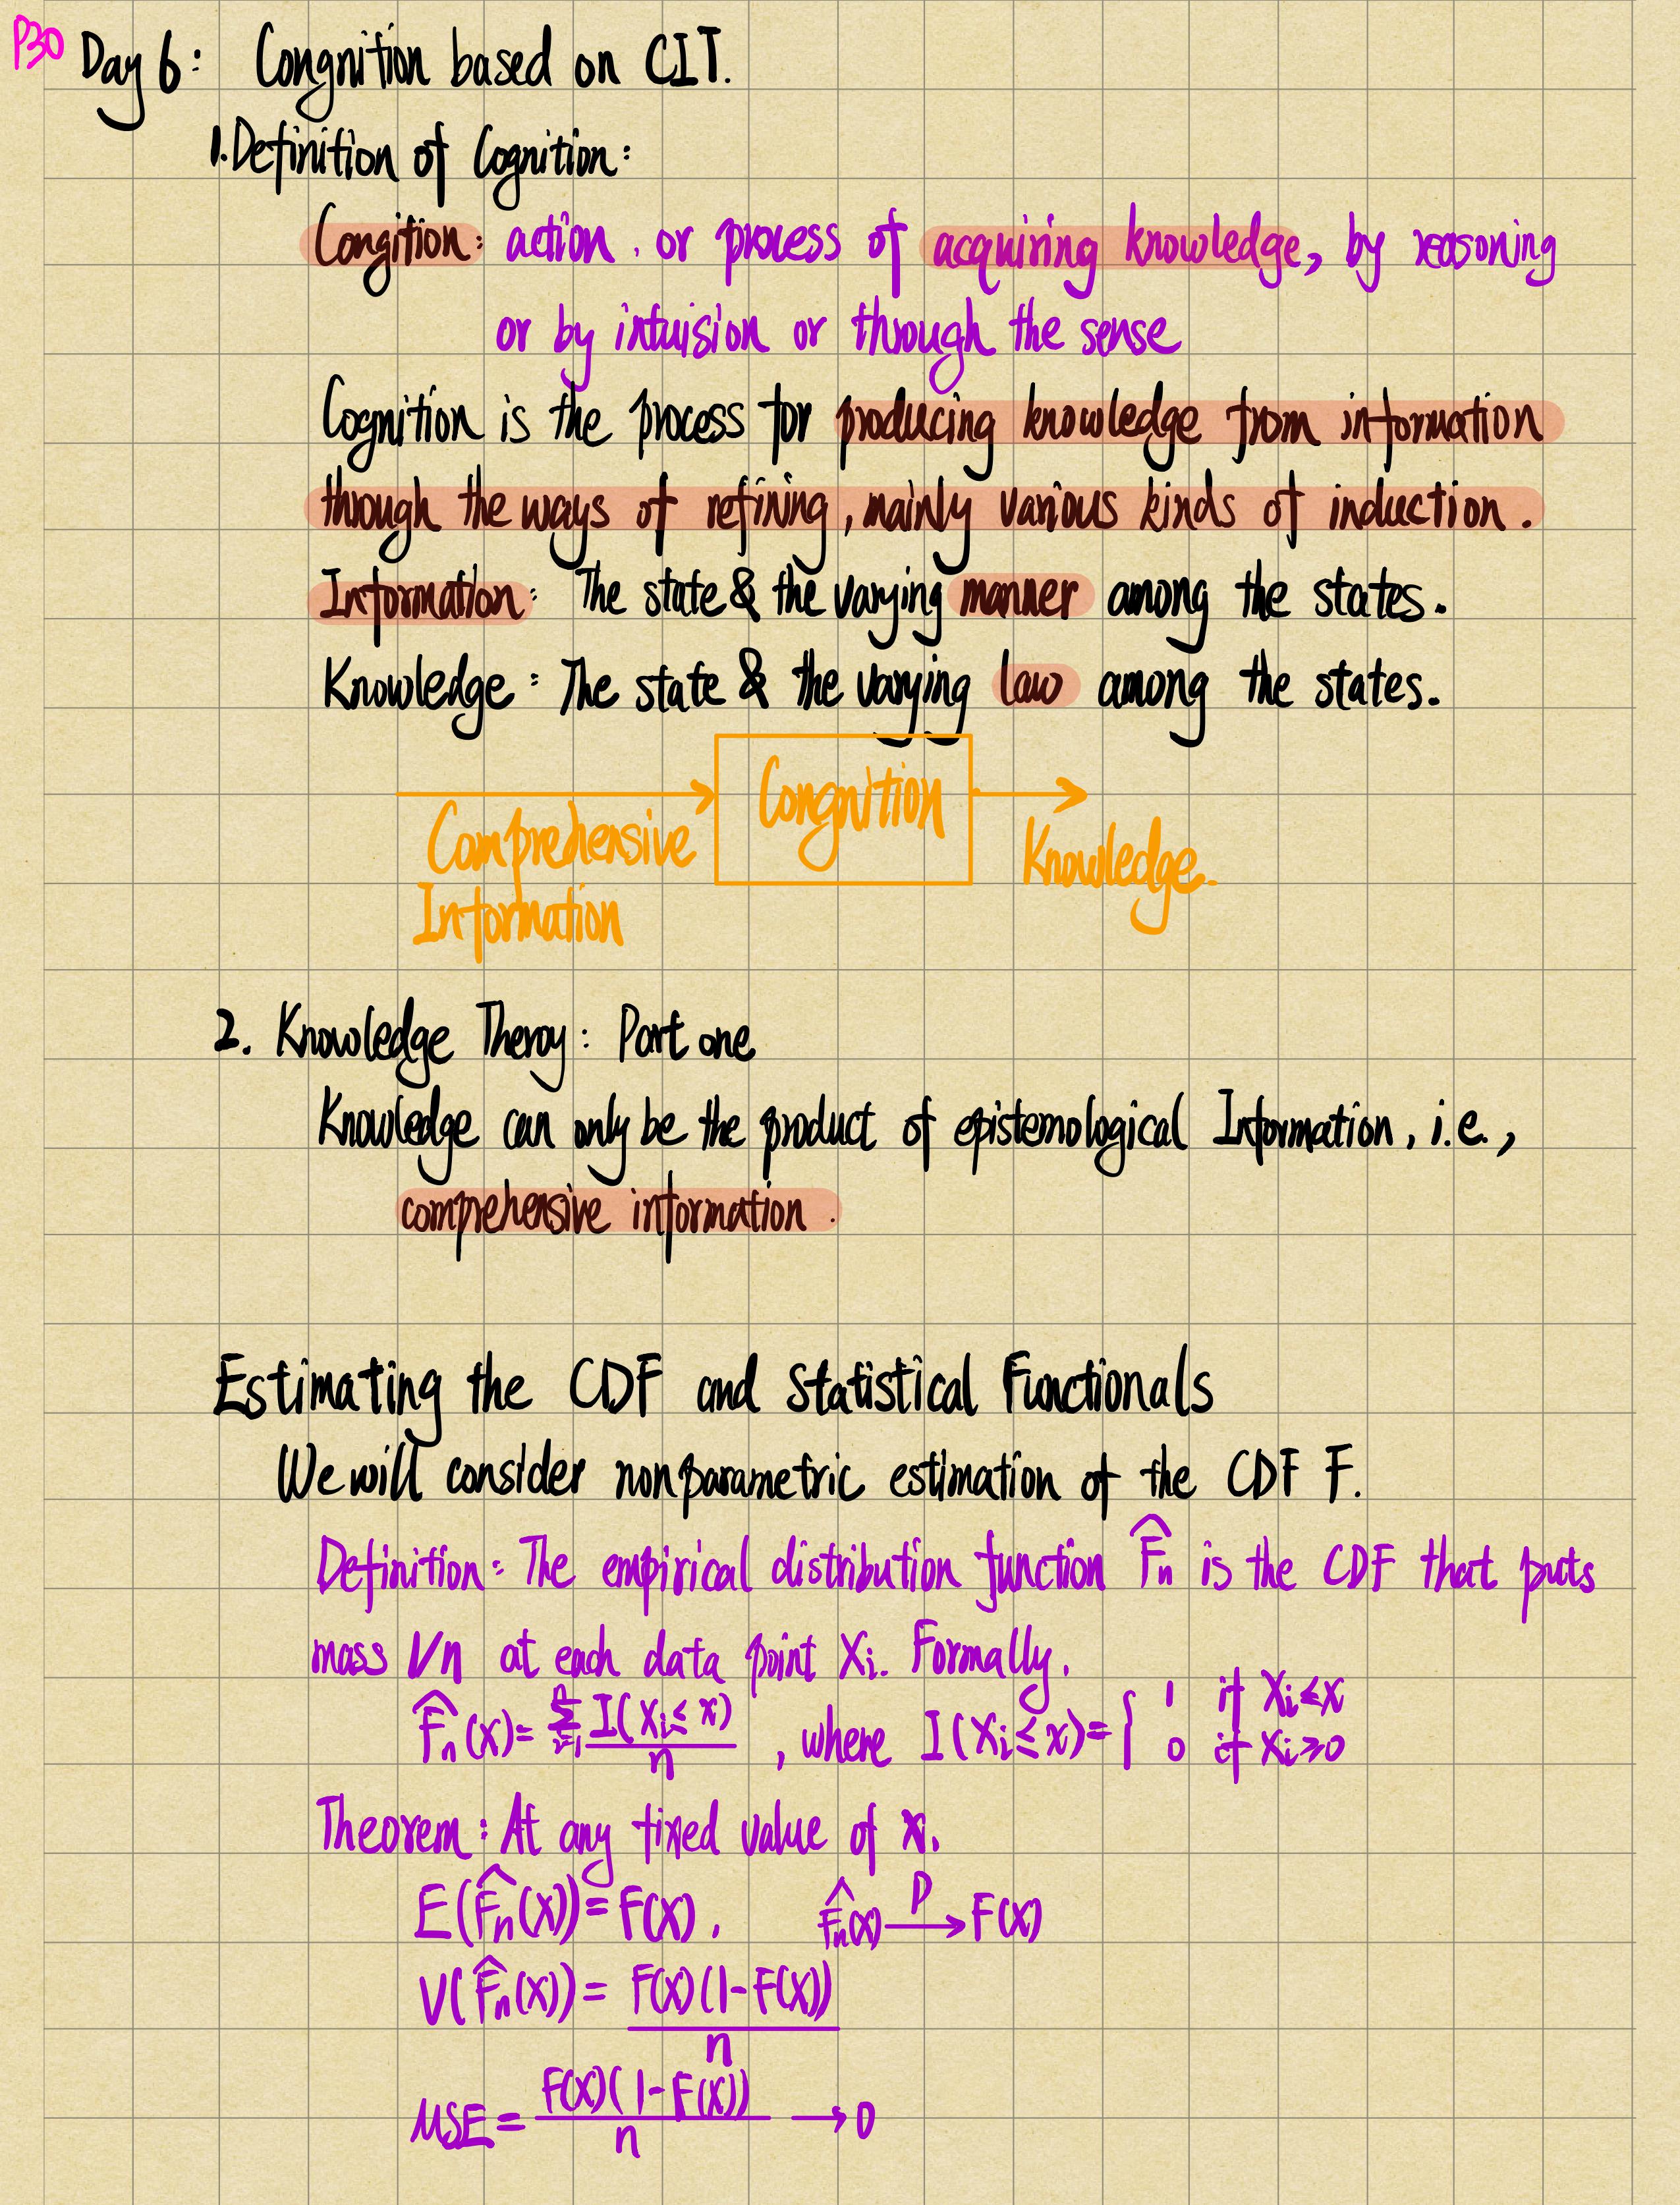 P30 Day 6: Congnition based on CIT.
1. Definition of Cognition:
Congition: action, or process of acquiring knowledge, by reasoning
or by intuision or through the sense
Cognition is the process for producing knowledge from information
through the ways of refining, mainly various kinds of induction.
Information: The state & the varying manner among the states.
Knowledge: The state & the varying law among the states.
Congnition
Comprehensive
Information
Knowledge.
2. Knowledge Theroy: Part one
Knowledge can only be the product of epistemological Information, i.e.,
comprehensive information.
Estimating the CDF and Statistical Functionals
We will consider nonparametric estimation of the CDF F.
Definition: The empirical distribution function F̂n is the CDF that puts
mass 1/n at each data point Xi. Formally,
F̂n(x) = Σ_{i=1}^{n} I(Xi ≤ x) / n, where I(Xi ≤ x) = { 1 if Xi ≤ x
0 if Xi ≥ 0
Theorem: At any fixed value of x.
E(F̂n(x)) = F(x), F̂n(x) →P F(x)
V(F̂n(x)) = F(x)(1-F(x)) / n
MSE = F(x)(1-F(x)) / n → 0